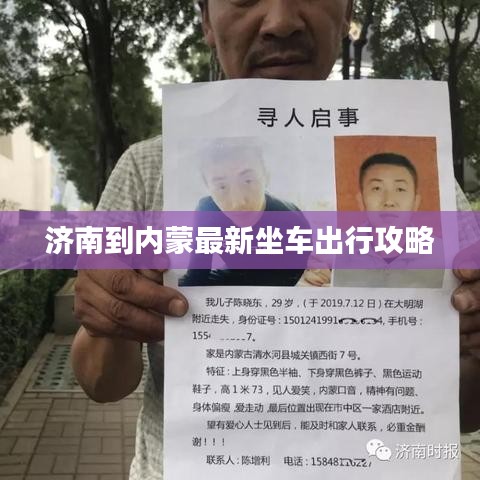 寻人启事
济南到内蒙最新坐车出行攻略
我儿子陈晓东，29岁，（于2019.7.12日）在大明湖
附近走失，身份证号：1501241991 4，手机号：
155 7。
家是内蒙古清水河县城关镇西街7号。
特征：上身穿黑色半袖、下身穿黑色裤子、黑色运动
鞋子，高1米73，见人爱笑，内蒙口音，精神有问题、
身体偏瘦,爱走动,最后位置出现在市中区一家酒店附近。
望有爱心人士见到后，能及时和家人联系，必重金酬
谢！！！
联系人：陈增利 电话：15848 227
济南时报